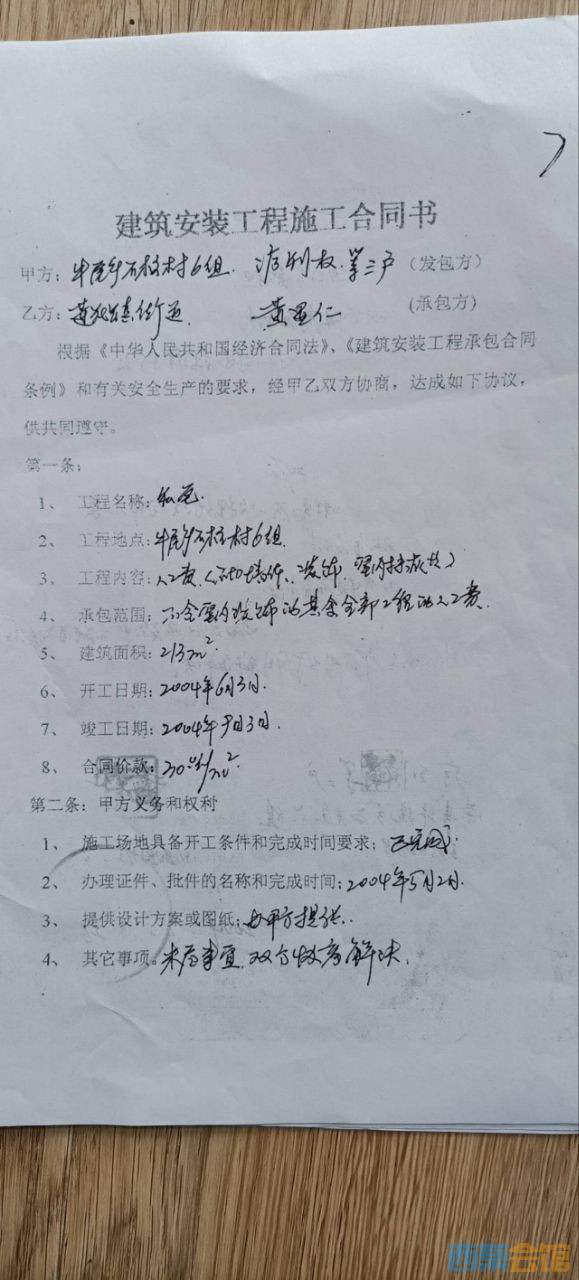 建筑安装工程施工合同书
甲方：牛尾乡石柱村6组. 权. 等三户（发包方）
乙方： 黄 仁 (承包方)
根据《中华人民共和国经济合同法》、《建筑安装工程承包合同
条例》和有关安全生产的要求，经甲乙双方协商，达成如下协议，
供共同遵守。
第一条：
1、 工程名称：私宅.
2、 工程地点：牛尾乡石柱村6组.
3、 工程内容：人工费（
4、 承包范围：不含室内装饰的其余全部工程的人工费.
5、 建筑面积：213m².
6、 开工日期：2004年6月3日.
7、 竣工日期：2004年9月3日.
8、 合同价款： /m²
第二条：甲方义务和权利
1、 施工场地具备开工条件和完成时间要求：已完成.
2、 办理证件、批件的名称和完成时间：2004年5月2日.
3、 提供设计方案或图纸：由甲方提供.
4、 其它事项。未尽事宜，双方 解决.
西祠会馆